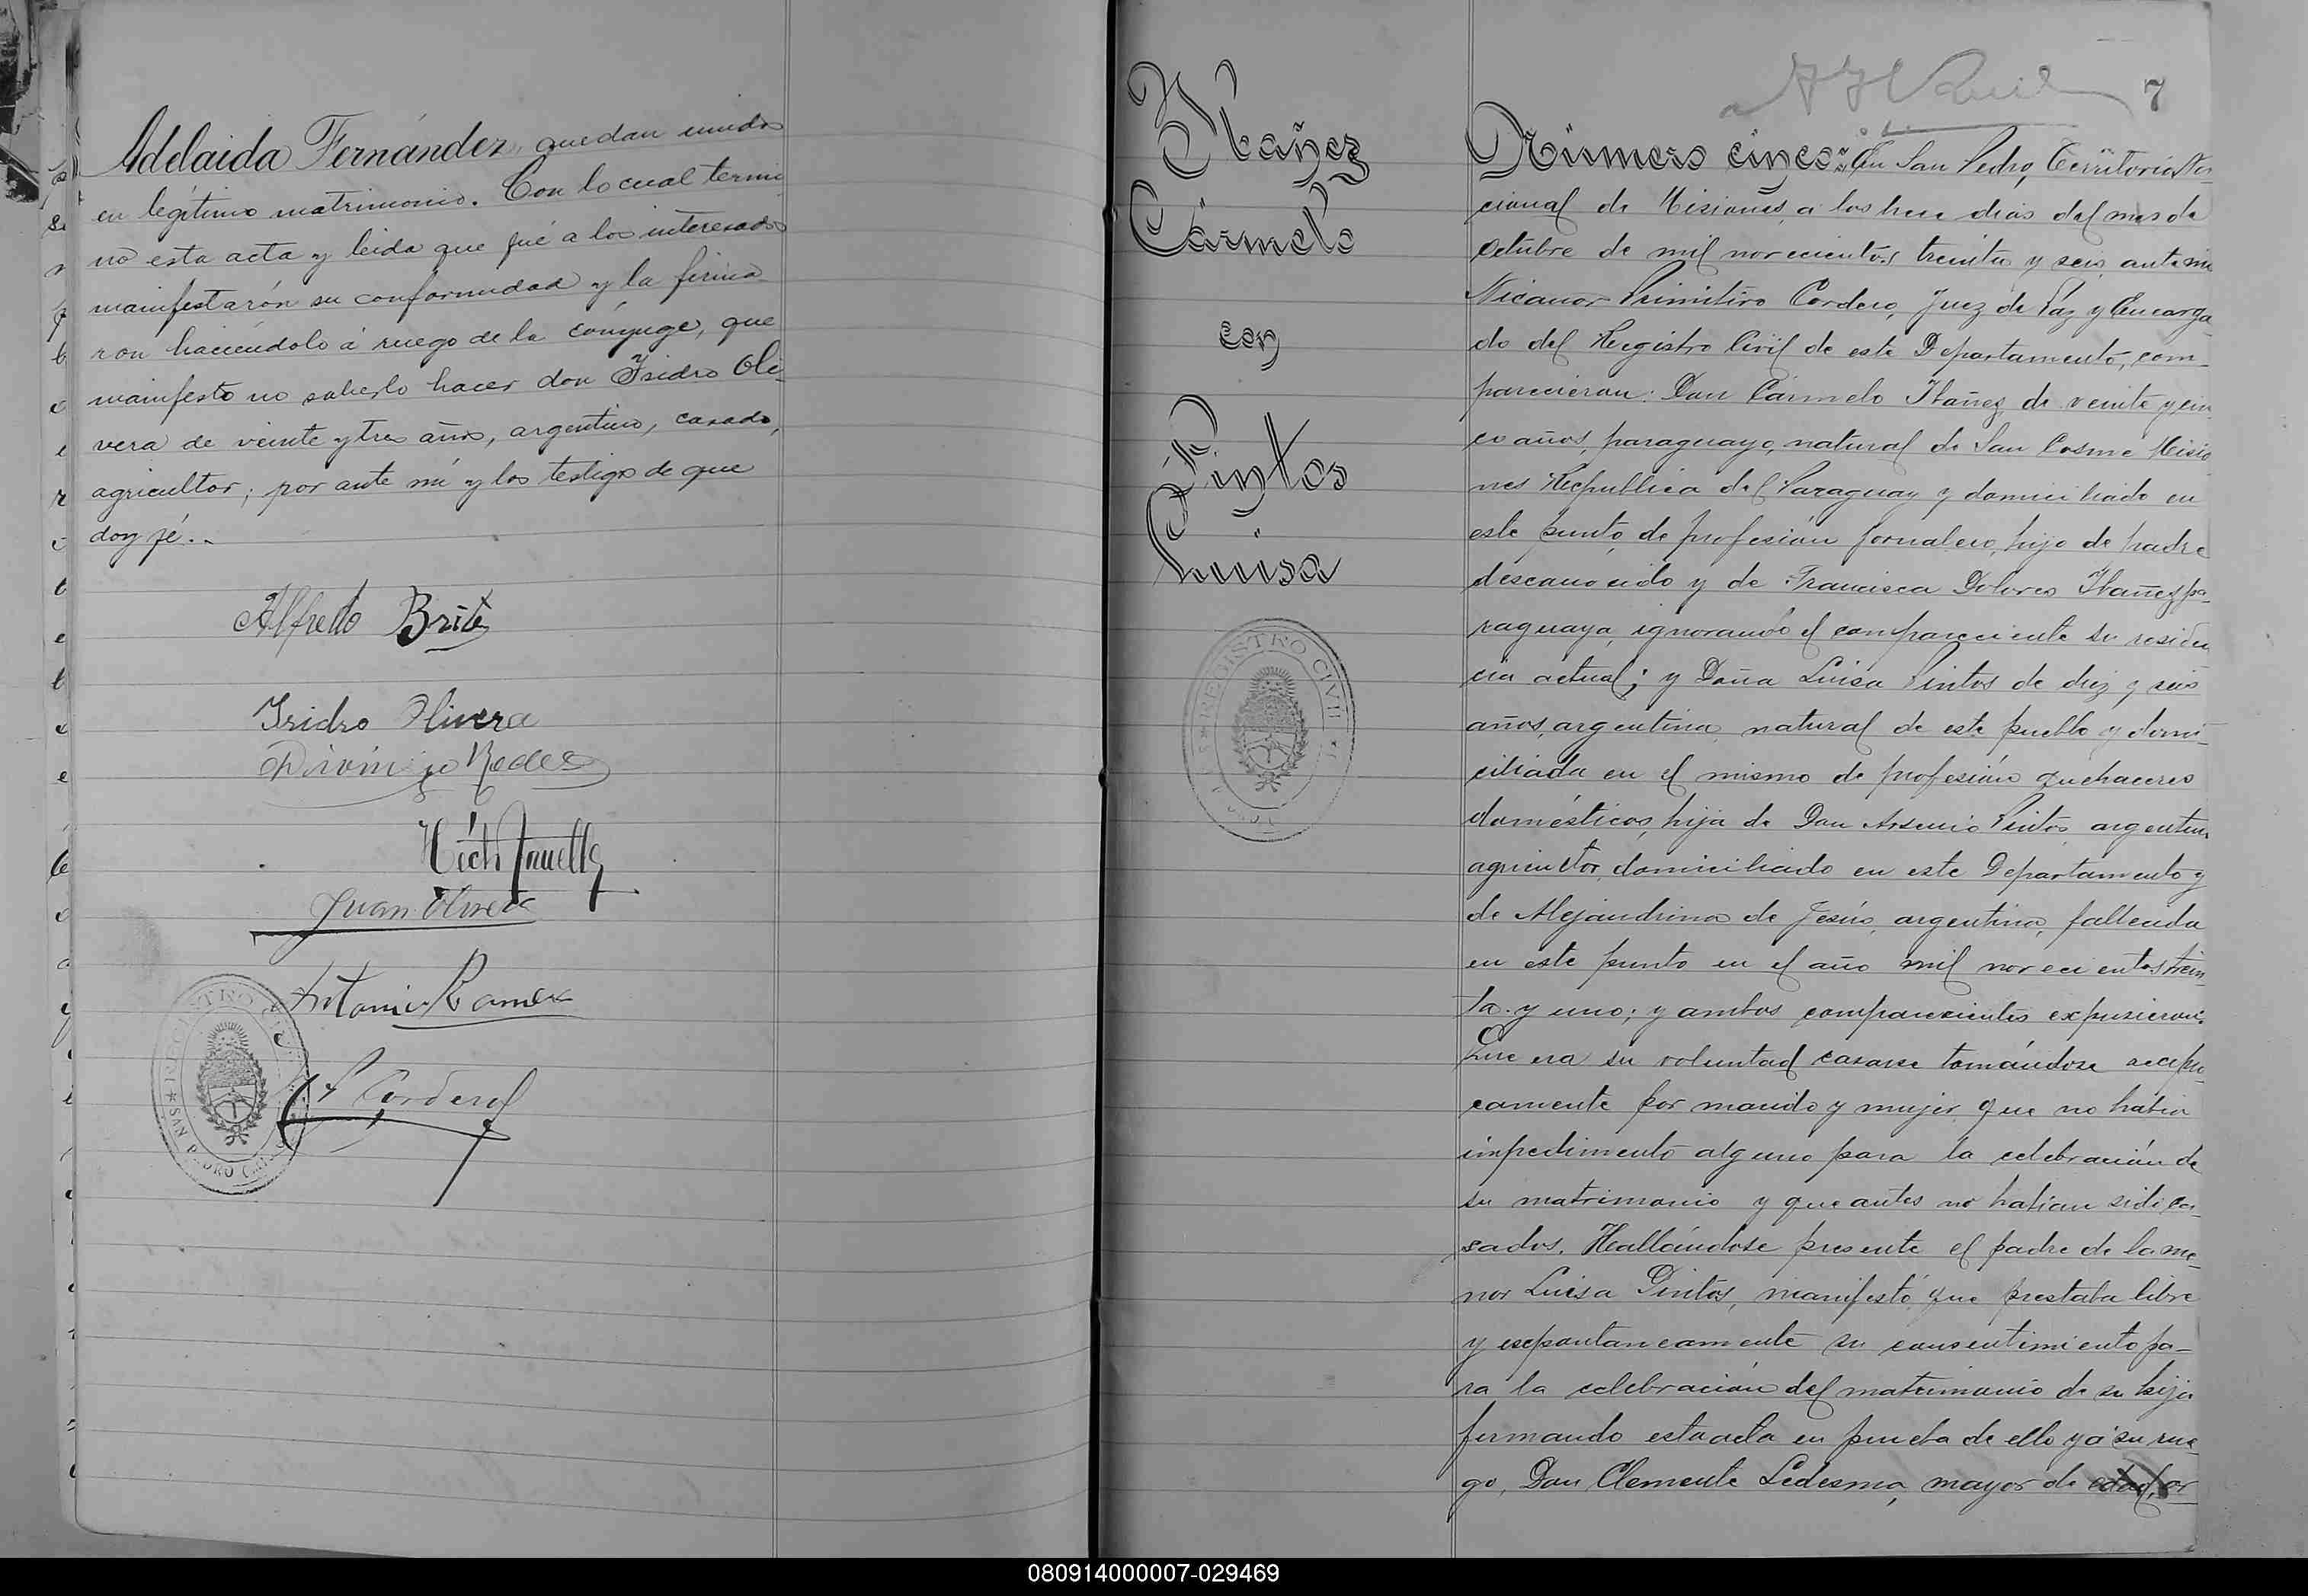 Adelaida Fernández, quedan unidos
en legítimo matrimonio. Con lo cual termi
nó esta acta y leida que fué a los interesados
manifestarón su conformidad y la firma
ron haciéndolo á ruego de la cónyuge, que
manifesto no saberlo hacer don Isidro Oli
vera de veinte y tres años, argentino, casado,
agricultor; por ante mí y los testigos de que
doy fé..
Alfredo Britez
Isidro Olivera
Juan Olivera
Antonio Ramez
Cordero
REGISTRO CIVIL
SAN PEDRO
7
Ibañez
Carmelo
con
Pintos
Luisa
REGISTRO CIVIL
Número cinco: En San Pedro, Territorio Na-
cional de Misiones, a los trece dias del mes de
Octubre de mil novecientos treinta y seis, ante mi
Nicanor Primitivo Cordero, Juez de Paz y Encarga
do del Registro Civil de este Departamento, com-
parecieron: Don Carmelo Ibañez, de veinte y cin
co años, paraguayo, natural de San Cosme Misio
nes Republica del Paraguay y domiciliado en
este punto, de profesión jornalero, hijo de padre
desconocido y de Francisca Dolores Ibañez pa-
raguaya, ignorando el compareciente su residen
cia actual; y Doña Luisa Pintos de diez y seis
años, argentina, natural de este pueblo y domi-
ciliada en el mismo de profesión quehaceres
domésticos, hija de Don Arsenio Pintos, argentino
agricultor, domiciliado en este Departamento y
de Alejandrina de Jesús, argentina, fallecida
en este punto en el año mil novecientos trein
ta y uno; y ambos comparecientes expusieron:
Que era su voluntad casarse tomándose recipro
camente por marido y mujer, que no habia
impedimento alguno para la celebración de
su matrimonio y que antes no habian sido ca-
sados. Hallándose presente el padre de la me-
nor Luisa Pintos, manifestó que prestaba libre
y espontaneamente su consentimiento pa-
ra la celebración del matrimonio de su hija
firmando esta acta en prueba de ello y á su rue-
go, Don Clemente Ledesma, mayor de edad, ar
080914000007-029469